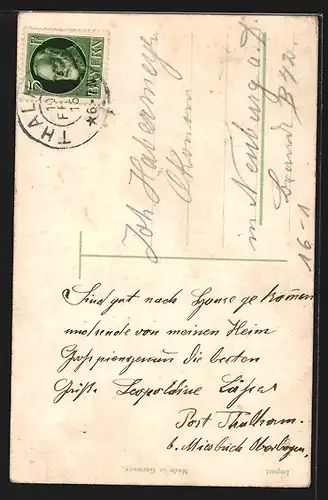 5 P
BAYERN
THAL
Joh. Habermeyr
Ökonom
in Neuburg a. D.
B 42
16-1
Sind gut nach Hause gekommen
und sende von meinen Heim
die besten
Grüße Leopoldine
Post Thalham
b. Miesbach Oberbayern
Made in Germany.
Import